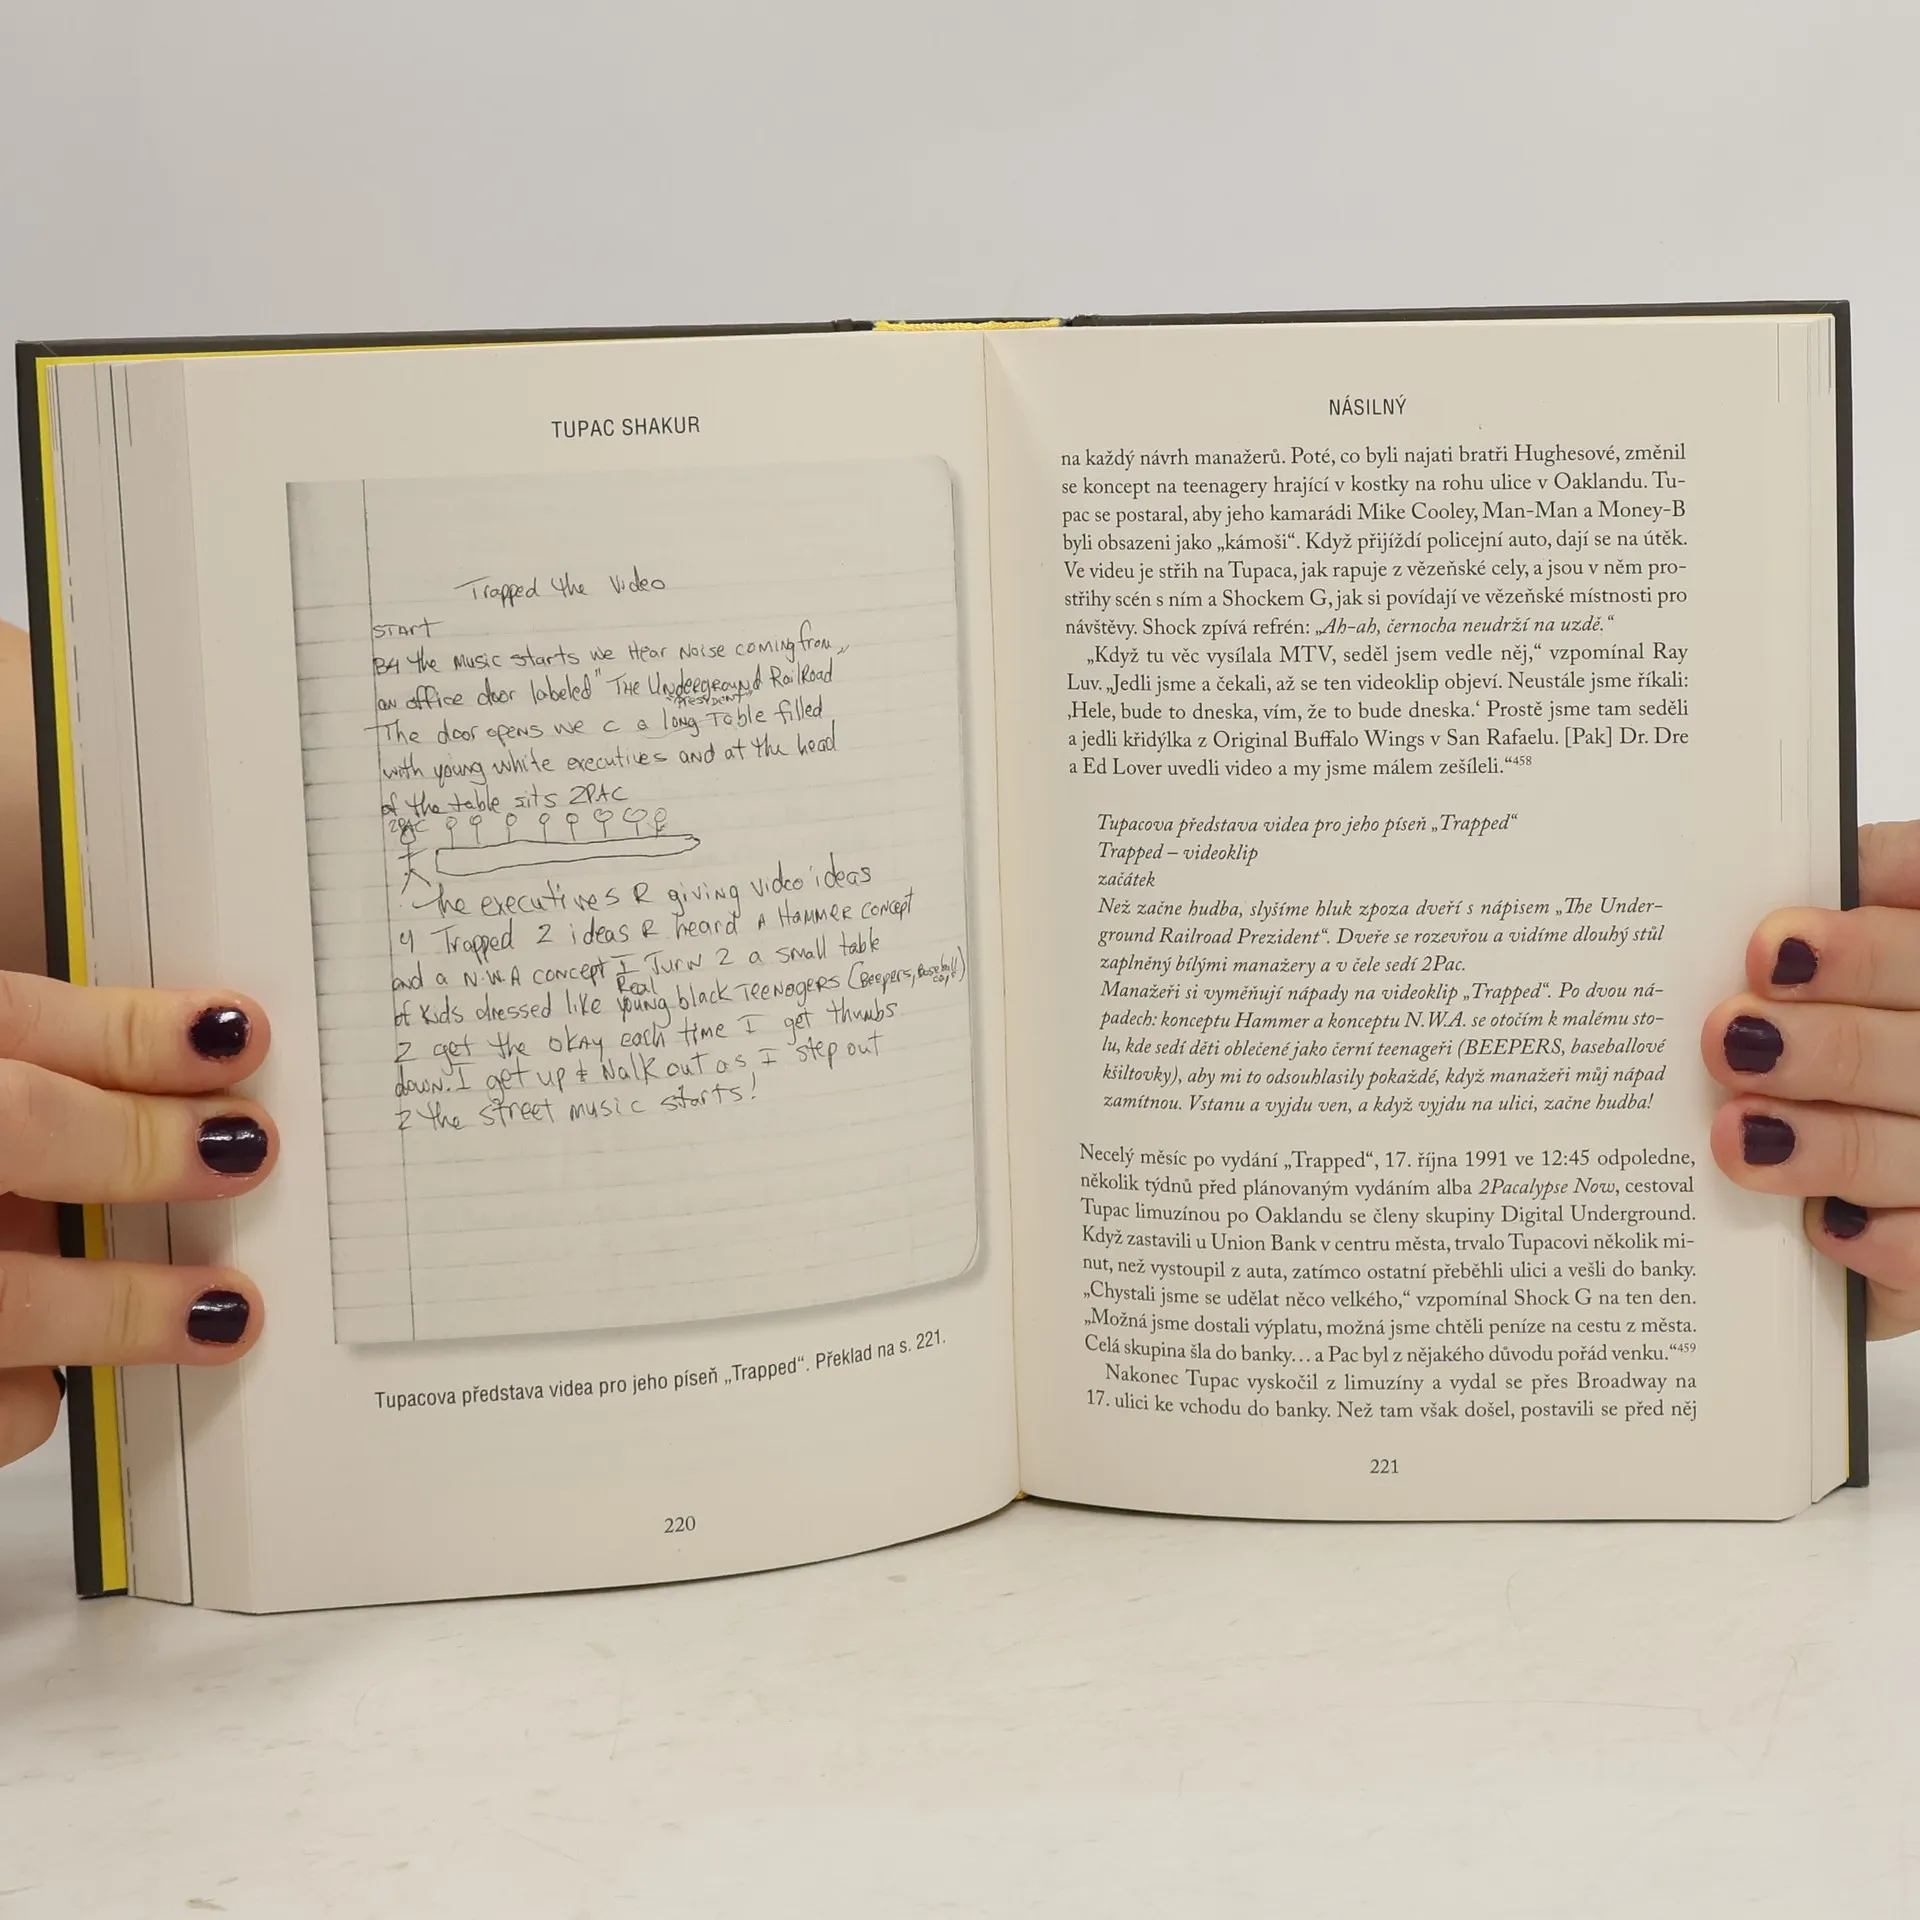 TUPAC SHAKUR
Trapped the Video
START
B4 the music starts we Hear Noise coming from
an office door labeled "THE Underground Railroad
President"
The door opens we c a long Table filled
with young white executives and at the head
of the table sits 2PAC
2PAC
The executives R giving video ideas
4 Trapped 2 ideas R heard A HAMMER CONCEPT
and a N.W.A concept I Turn 2 a small table
of kids dressed like Real young black TEENAGERS (Beepers, Baseball caps)
2 get the okay each time I get thumbs
down. I get up & walk out as I step out
2 the street music starts!
Tupacova představa videa pro jeho píseň „Trapped“. Překlad na s. 221.
220
NÁSILNÝ
na každý návrh manažerů. Poté, co byli najati bratři Hughesové, změnil
se koncept na teenagery hrající v kostky na rohu ulice v Oaklandu. Tu-
pac se postaral, aby jeho kamarádi Mike Cooley, Man-Man a Money-B
byli obsazeni jako „kámoši“. Když přijíždí policejní auto, dají se na útěk.
Ve videu je střih na Tupaca, jak rapuje z vězeňské cely, a jsou v něm pro-
střihy scén s ním a Shockem G, jak si povídají ve vězeňské místnosti pro
návštěvy. Shock zpívá refrén: „Ah-ah, černocha neudrží na uzdě.“
„Když tu věc vysílala MTV, seděl jsem vedle něj,“ vzpomínal Ray
Luv. „Jedli jsme a čekali, až se ten videoklip objeví. Neustále jsme říkali:
‚Hele, bude to dneska, vím, že to bude dneska.‘ Prostě jsme tam seděli
a jedli křidýlka z Original Buffalo Wings v San Rafaelu. [Pak] Dr. Dre
a Ed Lover uvedli video a my jsme málem zešíleli.“458
Tupacova představa videa pro jeho píseň „Trapped“
Trapped – videoklip
začátek
Než začne hudba, slyšíme hluk zpoza dveří s nápisem „The Under-
ground Railroad Prezident“. Dveře se rozevřou a vidíme dlouhý stůl
zaplněný bílými manažery a v čele sedí 2Pac.
Manažeři si vyměňují nápady na videoklip „Trapped“. Po dvou ná-
padech: konceptu Hammer a konceptu N.W.A. se otočím k malému sto-
lu, kde sedí děti oblečené jako černí teenageři (BEEPERS, baseballové
kšiltovky), aby mi to odsouhlasily pokaždé, když manažeři můj nápad
zamítnou. Vstanu a vyjdu ven, a když vyjdu na ulici, začne hudba!
Necelý měsíc po vydání „Trapped“, 17. října 1991 ve 12:45 odpoledne,
několik týdnů před plánovaným vydáním alba 2Pacalypse Now, cestoval
Tupac limuzínou po Oaklandu se členy skupiny Digital Underground.
Když zastavili u Union Bank v centru města, trvalo Tupacovi několik mi-
nut, než vystoupil z auta, zatímco ostatní přeběhli ulici a vešli do banky.
„Chystali jsme se udělat něco velkého,“ vzpomínal Shock G na ten den.
„Možná jsme dostali výplatu, možná jsme chtěli peníze na cestu z města.
Celá skupina šla do banky… a Pac byl z nějakého důvodu pořád venku.“459
Nakonec Tupac vyskočil z limuzíny a vydal se přes Broadway na
17. ulici ke vchodu do banky. Než tam však došel, postavili se před něj
221